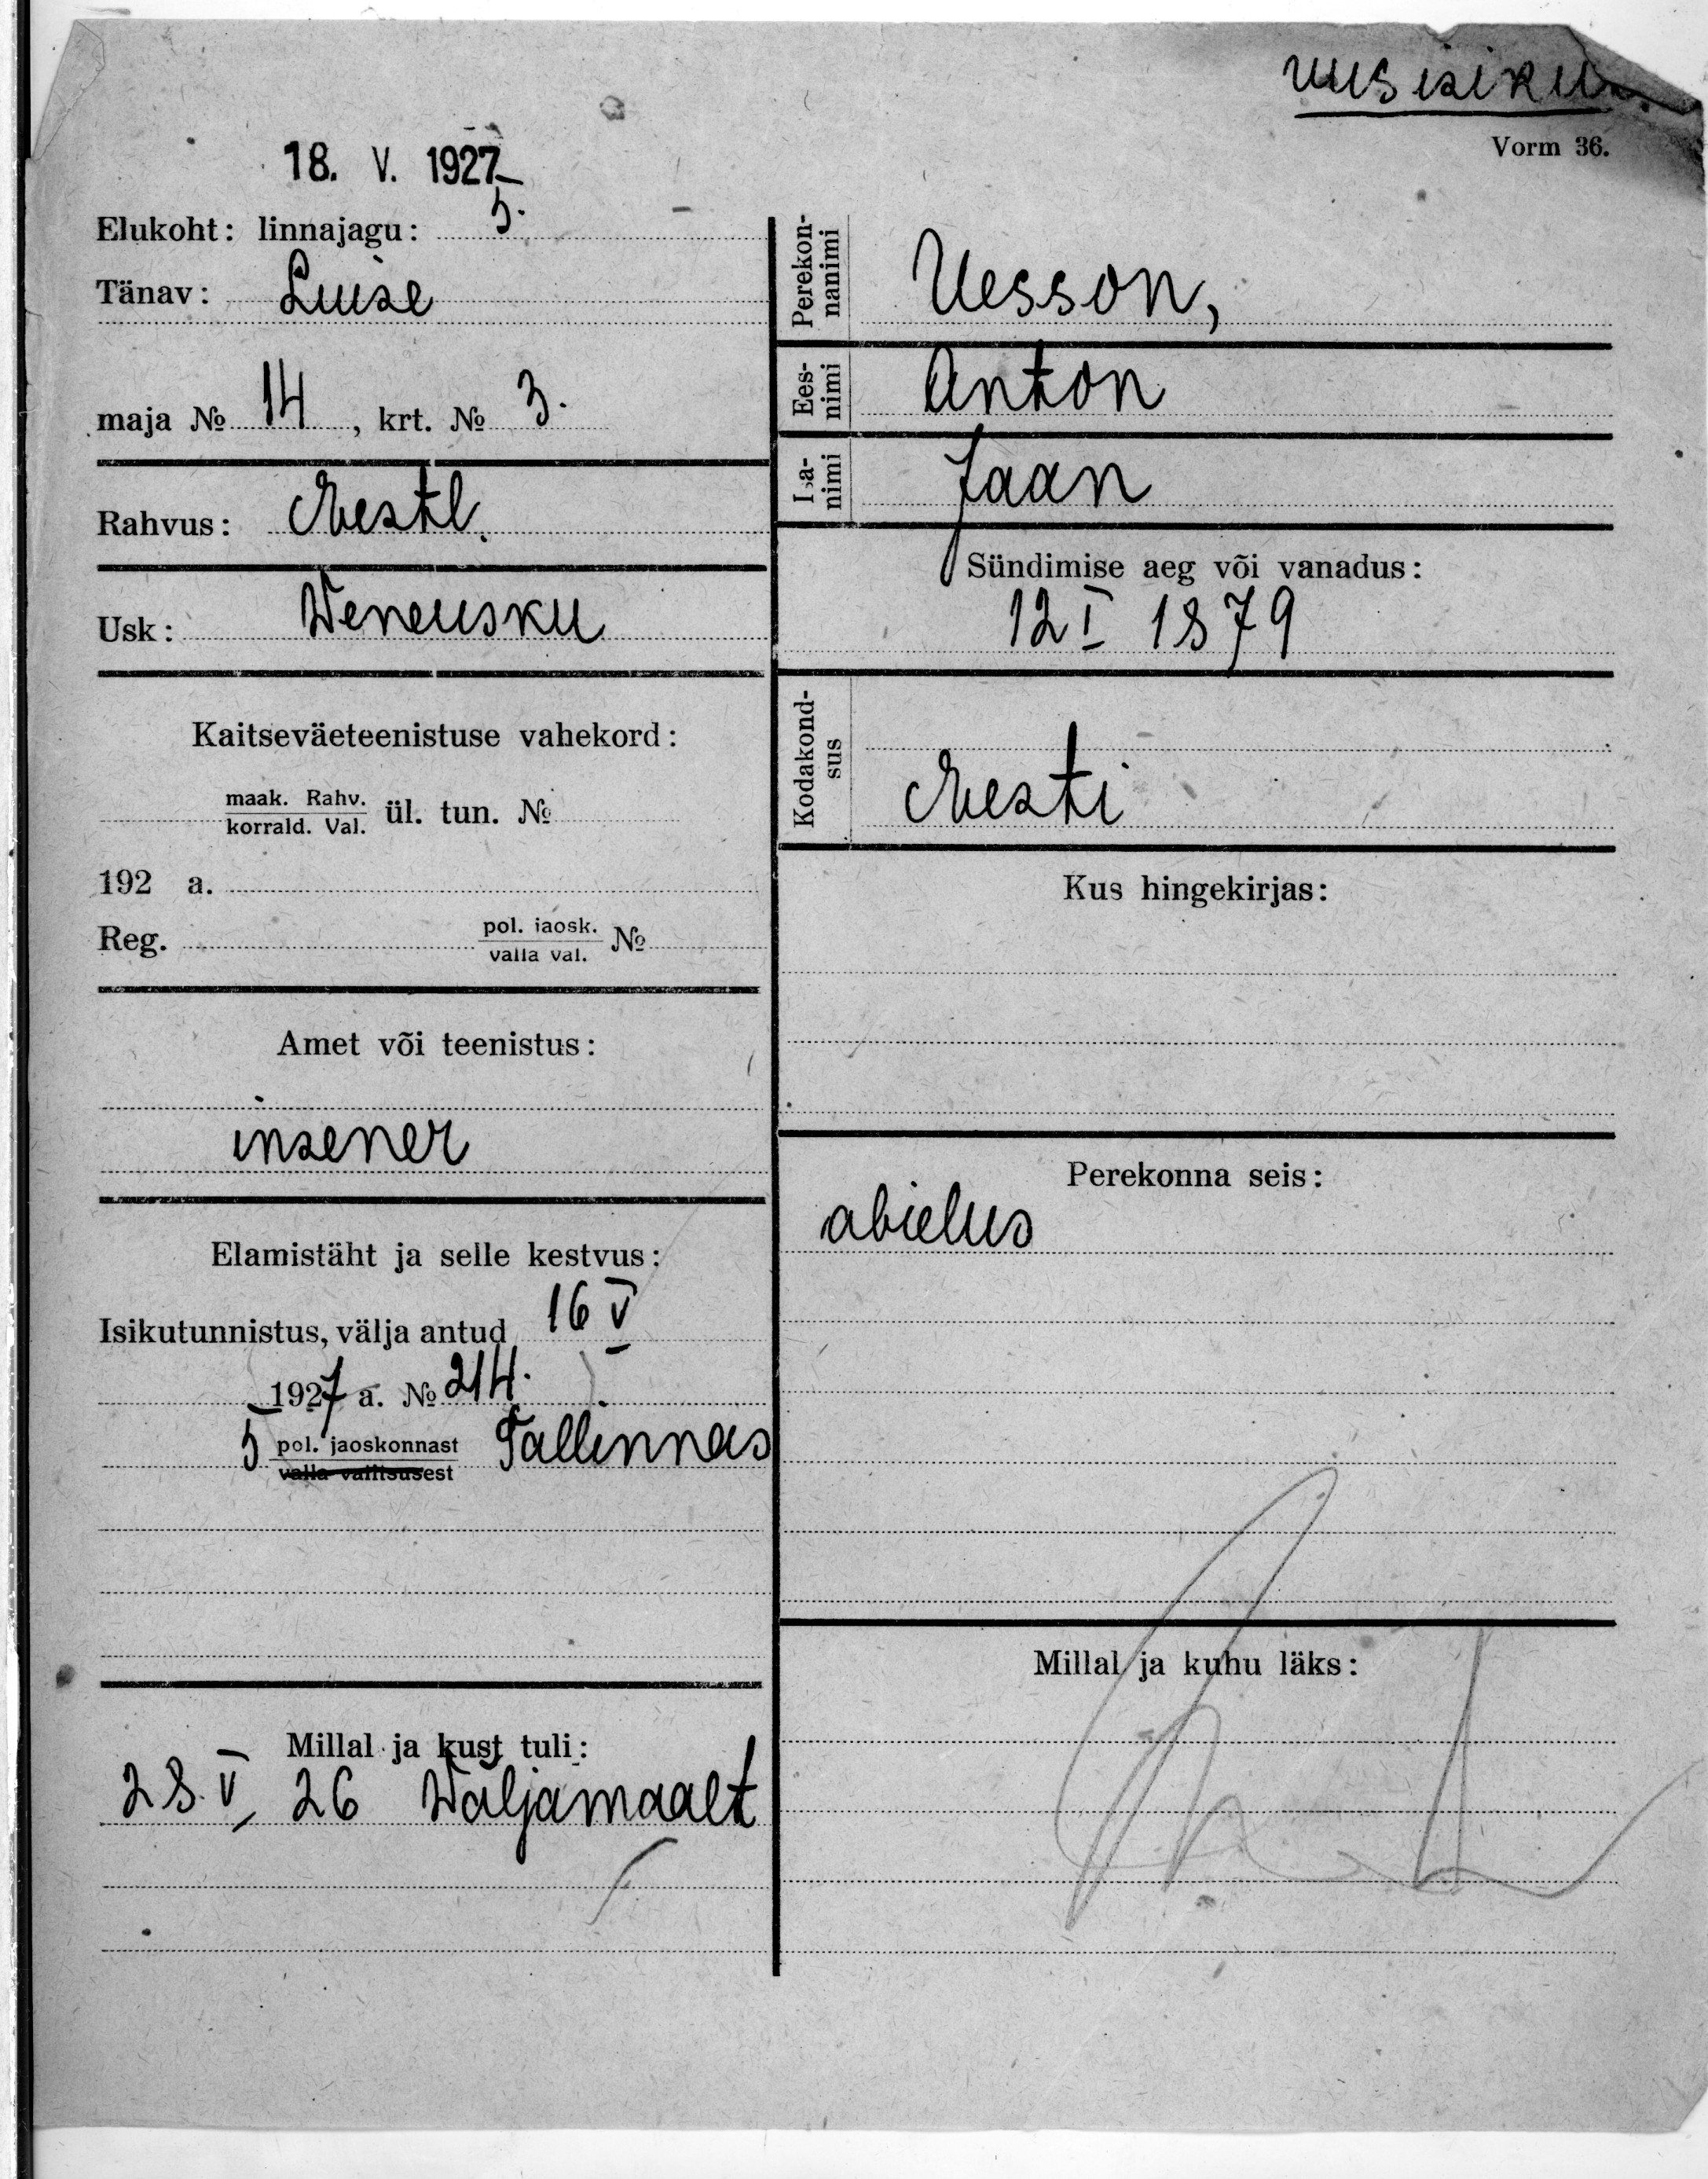 uus isiku
Vorm 36.
18. V. 1927
Elukoht: linnajagu: 5.
Tänav: Luise
maja № 14, krt. № 3.
Rahvus: Eestl.
Usk: Weneusku
Kaitseväeteenistuse vahekord:
maak. Rahv.
korrald. Val. ül. tun. №
192 a.
Reg. pol. jaosk.
valla val. №
Amet või teenistus:
insener
Elamistäht ja selle kestvus:
Isikutunnistus, välja antud 16 V
1927 a. № 214.
5 pol. jaoskonnast Tallinnas
valla valitsusest
Millal ja kust tuli:
28. V 26 Wäljamaalt
Perekon-
nanimi Uesson,
Ees-
nimi Anton
Isa-
nimi Jaan
Sündimise aeg või vanadus:
12 I 1879
Kodakond-
sus Eesti
Kus hingekirjas:
Perekonna seis:
abielus
Millal ja kuhu läks: